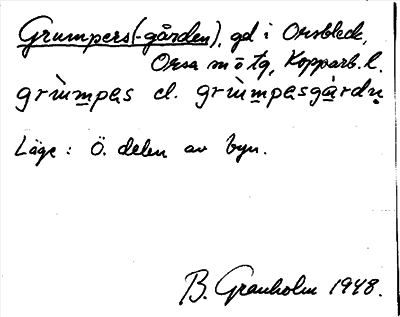 Grumpers(-gården), gd i Orsbleck,
Orsa sn o tg, Kopparb. l.
grùmpas el. grùmpasgàrdn̥
Läge: Ö. delen av byn.
B. Granholm 1948.